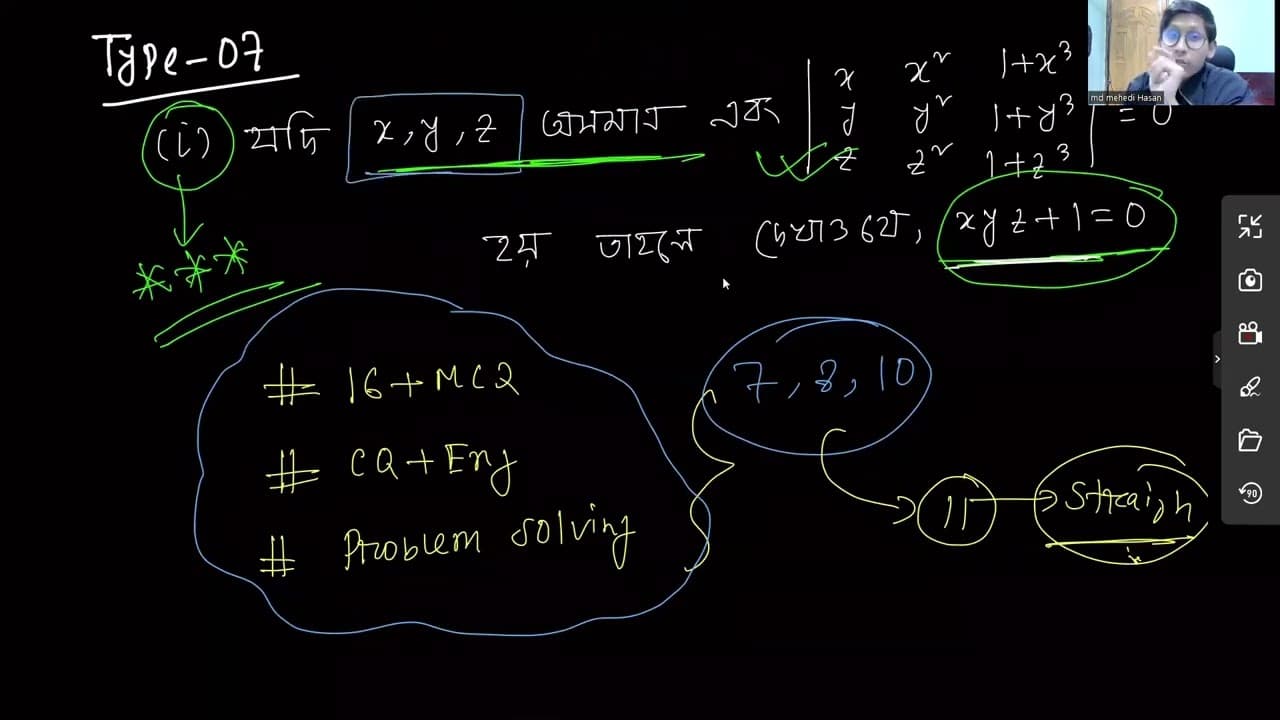 Type-07
(i) যদি x, y, z অসমান এবং | x x² 1+x³
y y² 1+y³ | = 0
z z² 1+z³
হয় তাহলে দেখাও যে, xyz+1=0
***
# 16+MCQ
# CQ+Eng
# Problem solving
7, 8, 10
11 → Straigh
md mehedi Hasan
90